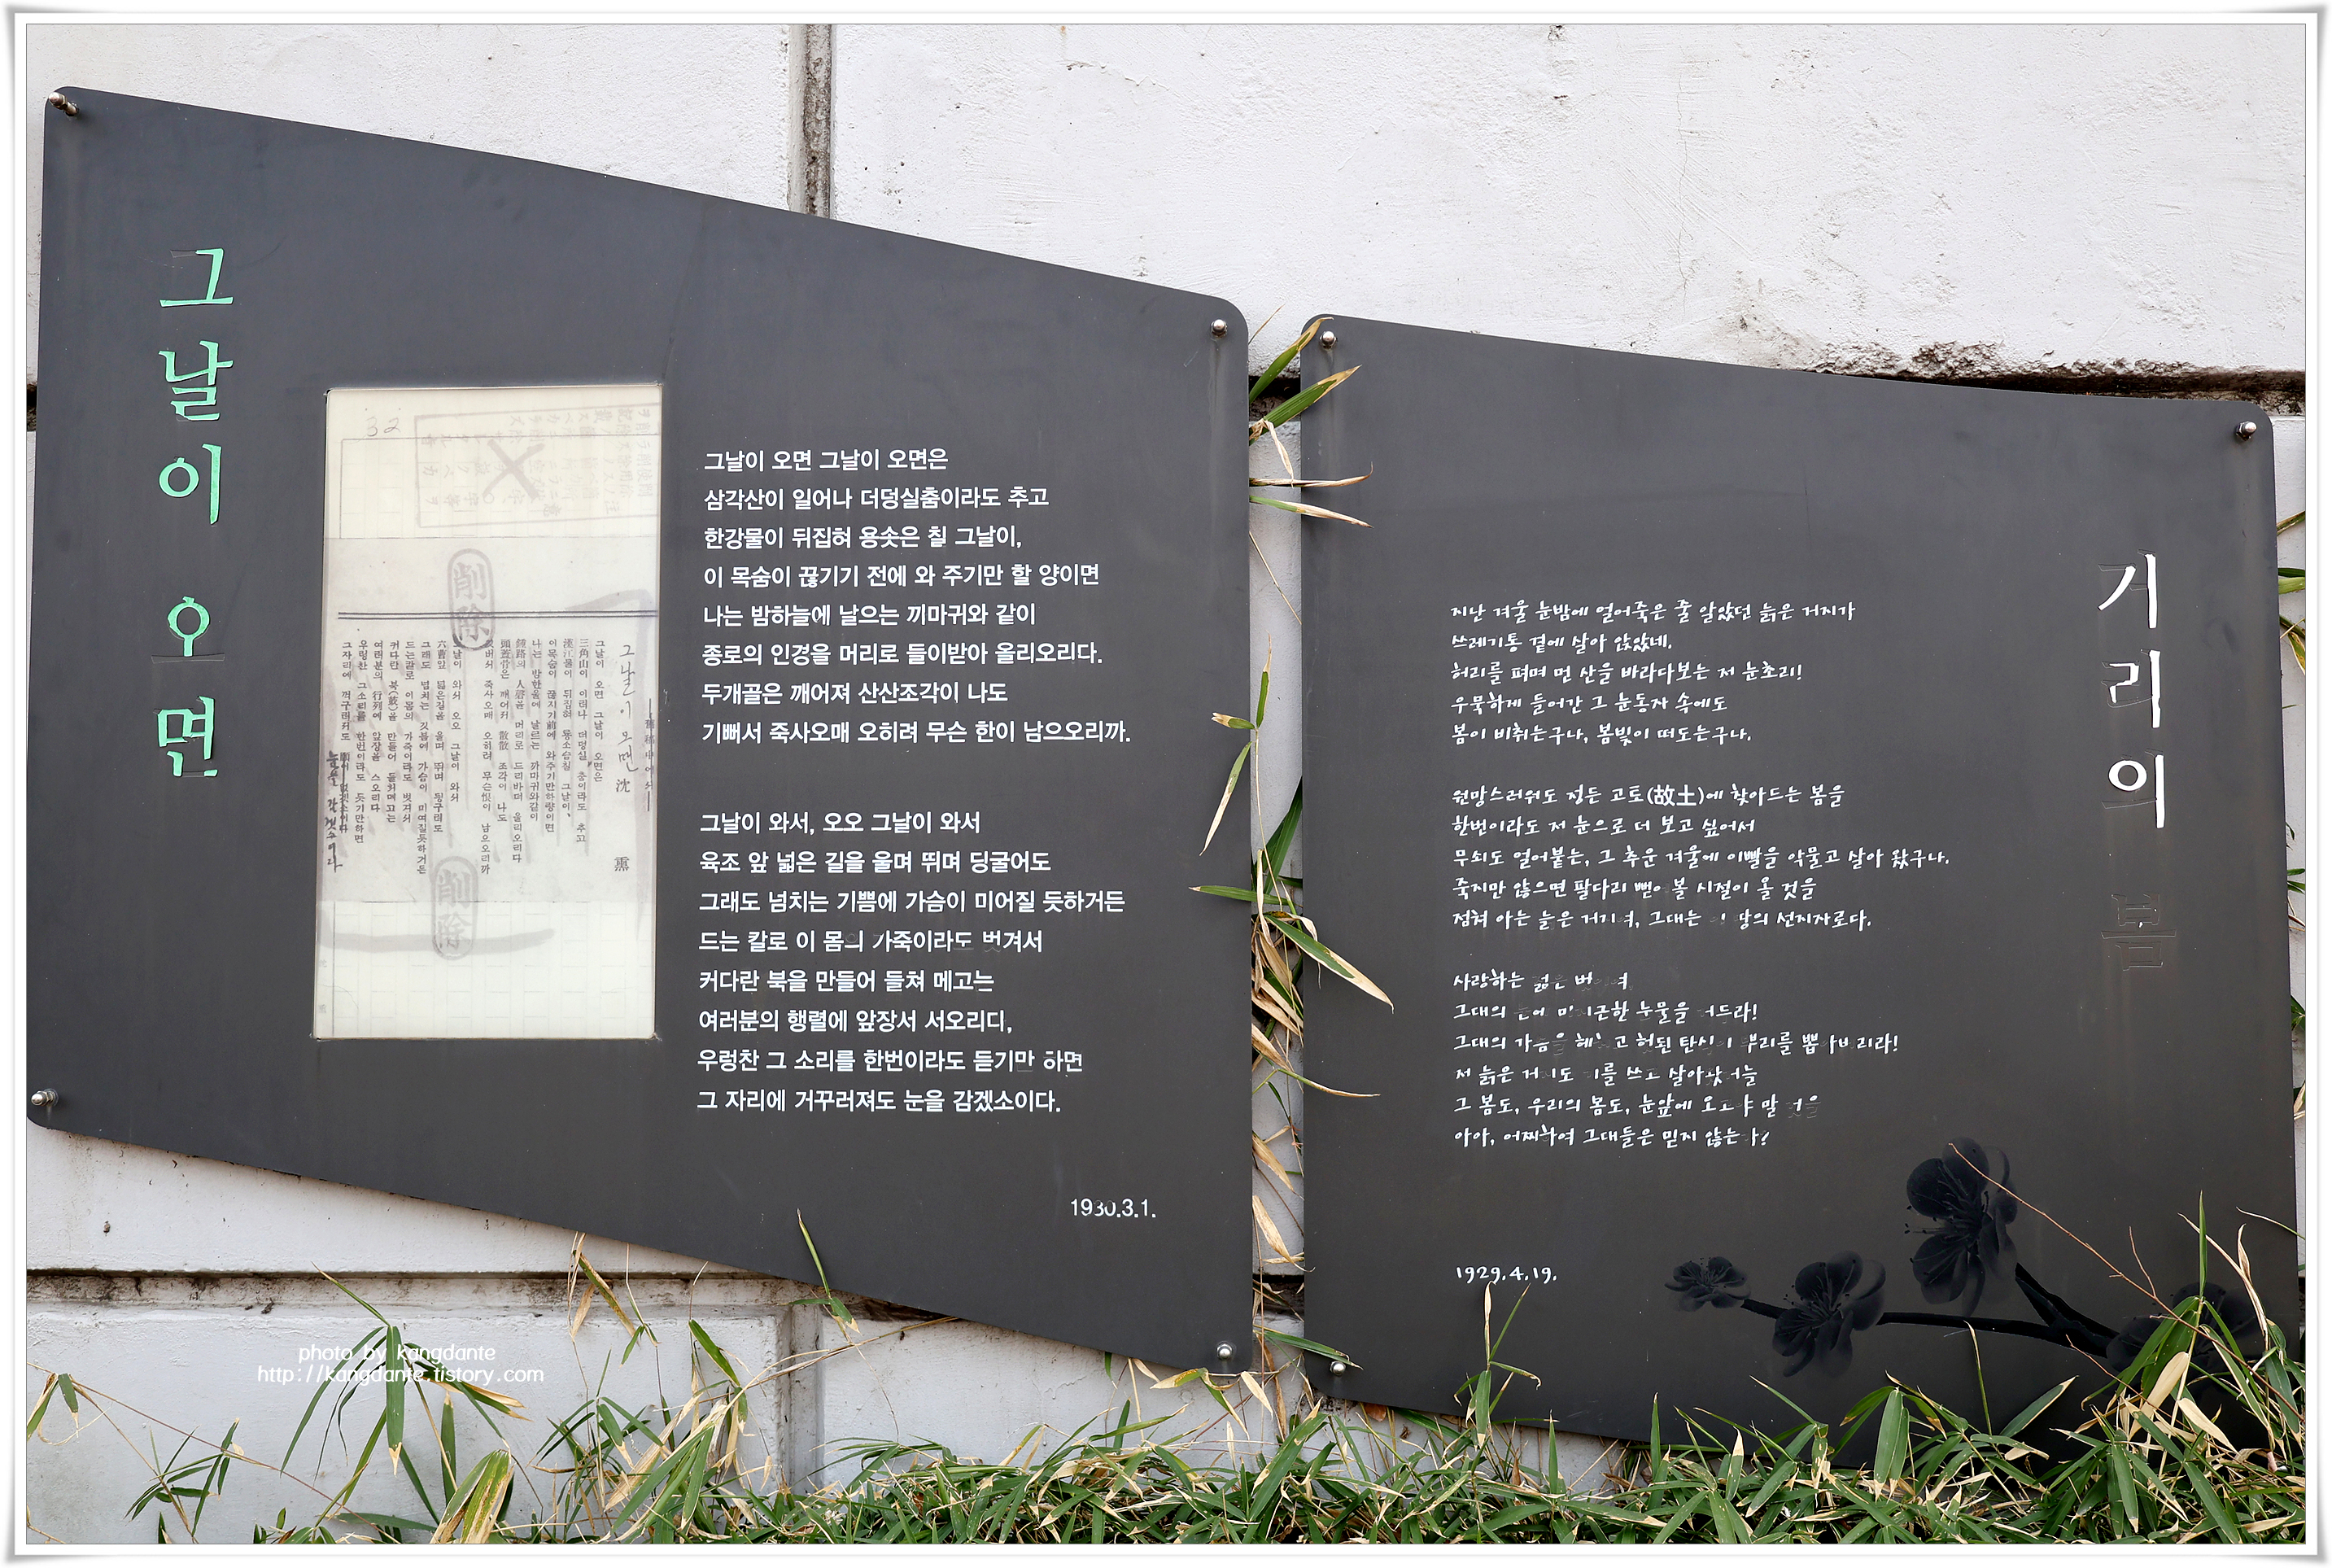 그날이 오면
32
削除
그날이 오면 沈 熏
削除
그날이 오면 그날이 오면은
삼각산이 일어나 더덩실춤이라도 추고
한강물이 뒤집혀 용솟은 칠 그날이,
이 목숨이 끊기기 전에 와 주기만 할 양이면
나는 밤하늘에 날으는 끼마귀와 같이
종로의 인경을 머리로 들이받아 올리오리다.
두개골은 깨어져 산산조각이 나도
기뻐서 죽사오매 오히려 무슨 한이 남으오리까.
그날이 와서, 오오 그날이 와서
육조 앞 넓은 길을 울며 뛰며 딩굴어도
그래도 넘치는 기쁨에 가슴이 미어질 듯하거든
드는 칼로 이 몸의 가죽이라도 벗겨서
커다란 북을 만들어 들쳐 메고는
여러분의 행렬에 앞장서 서오리디,
우렁찬 그 소리를 한번이라도 듣기만 하면
그 자리에 거꾸러져도 눈을 감겠소이다.
1930.3.1.
기리의 봄
지난 겨울 눈밤에 얼어죽은 줄 알았던 늙은 거지가
쓰레기통 곁에 살아 앉았네.
허리를 펴며 먼 산을 바라다보는 저 눈초리!
우묵하게 들어간 그 눈동자 속에도
봄이 비취는구나, 봄빛이 떠도는구나.
원망스러워도 정든 고토(故土)에 찾아드는 봄을
한번이라도 저 눈으로 더 보고 싶어서
무쇠도 얼어붙는, 그 추운 겨울에 이빨을 악물고 살아 왔구나.
죽지만 않으면 팔다리 뻗어 볼 시절이 올 것을
점쳐 아는 늙은 거지여, 그대는 이 땅의 선지자로다.
사랑하는 젊은 벗이여,
그대의 눈에 미지근한 눈물을 거드라!
그대의 가슴을 헤치고 헛된 탄식의 뿌리를 뽑아버리라!
저 늙은 거지도 기를 쓰고 살아왔거늘
그 봄도, 우리의 봄도, 눈앞에 오고야 말 것을
아아, 어찌하여 그대들은 믿지 않는가?
1929.4.19.
photo by kangdante
http://kangdante.tistory.com